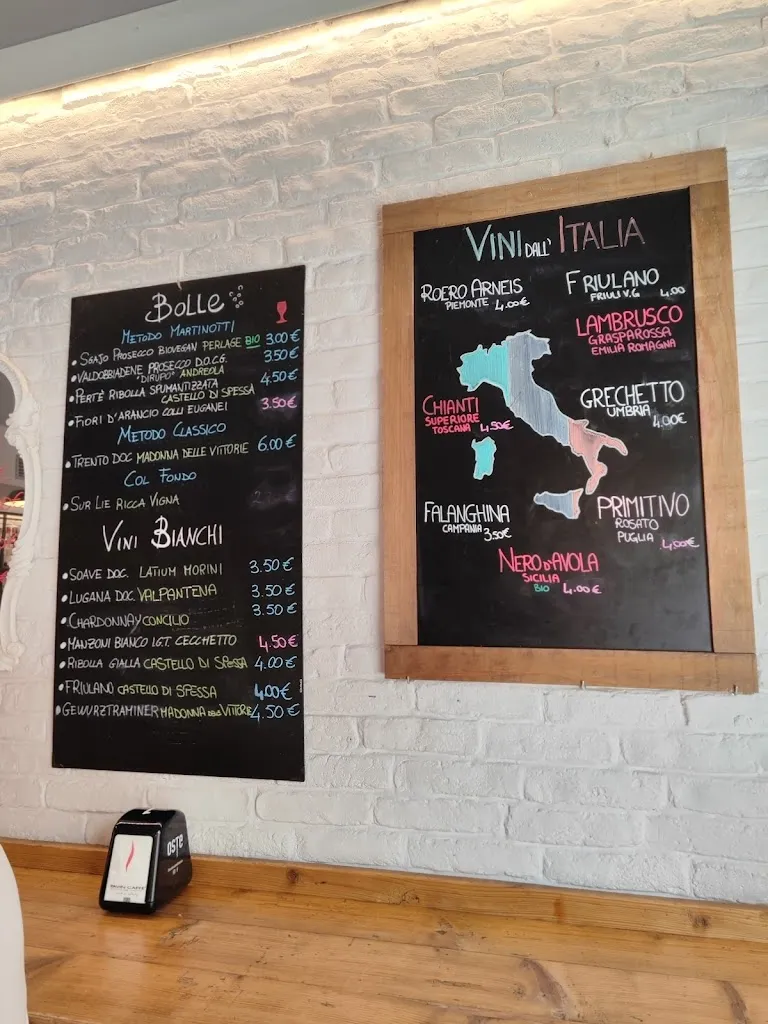 BOLLE
METODO MARTINOTTI
• SGAJO PROSECCO BIOVEGAN PERLAGE BIO 3.00 €
• VALDOBBIADENE PROSECCO D.O.C.G. 3.50 €
"DIRUPO" ANDREOLA
• PERTÈ RIBOLLA SPUMANTIZZATA 4.50 €
CASTELLO DI SPESSA
• FIORI D'ARANCIO COLLI EUGANEI 3.50 €
METODO CLASSICO
• TRENTO DOC MADONNA DELLE VITTORIE 6.00 €
COL FONDO
• SUR LIE RICCA VIGNA
VINI BIANCHI
• SOAVE DOC. LATIUM MORINI 3.50 €
• LUGANA DOC VALPANTENA 3.50 €
• CHARDONNAY CONCILIO 3.50 €
• MANZONI BIANCO I.G.T. CECCHETTO 4.50 €
• RIBOLLA GIALLA CASTELLO DI SPESSA 4.00 €
• FRIULANO CASTELLO DI SPESSA 4.00 €
• GEWURZTRAMINER MADONNA DELLE VITTORIE 4.50 €
VINI DALL' ITALIA
ROERO ARNEIS
PIEMONTE 4.00 €
FRIULANO
FRIULI V.G 4.00
LAMBRUSCO
GRASPAROSSA
EMILIA ROMAGNA
CHIANTI
SUPERIORE
TOSCANA 4.50 €
GRECHETTO
UMBRIA
4.00 €
FALANGHINA
CAMPANIA
3.50 €
PRIMITIVO
ROSATO
PUGLIA
4.00 €
NERO D'AVOLA
SICILIA
BIO 4.00 €
OSTE